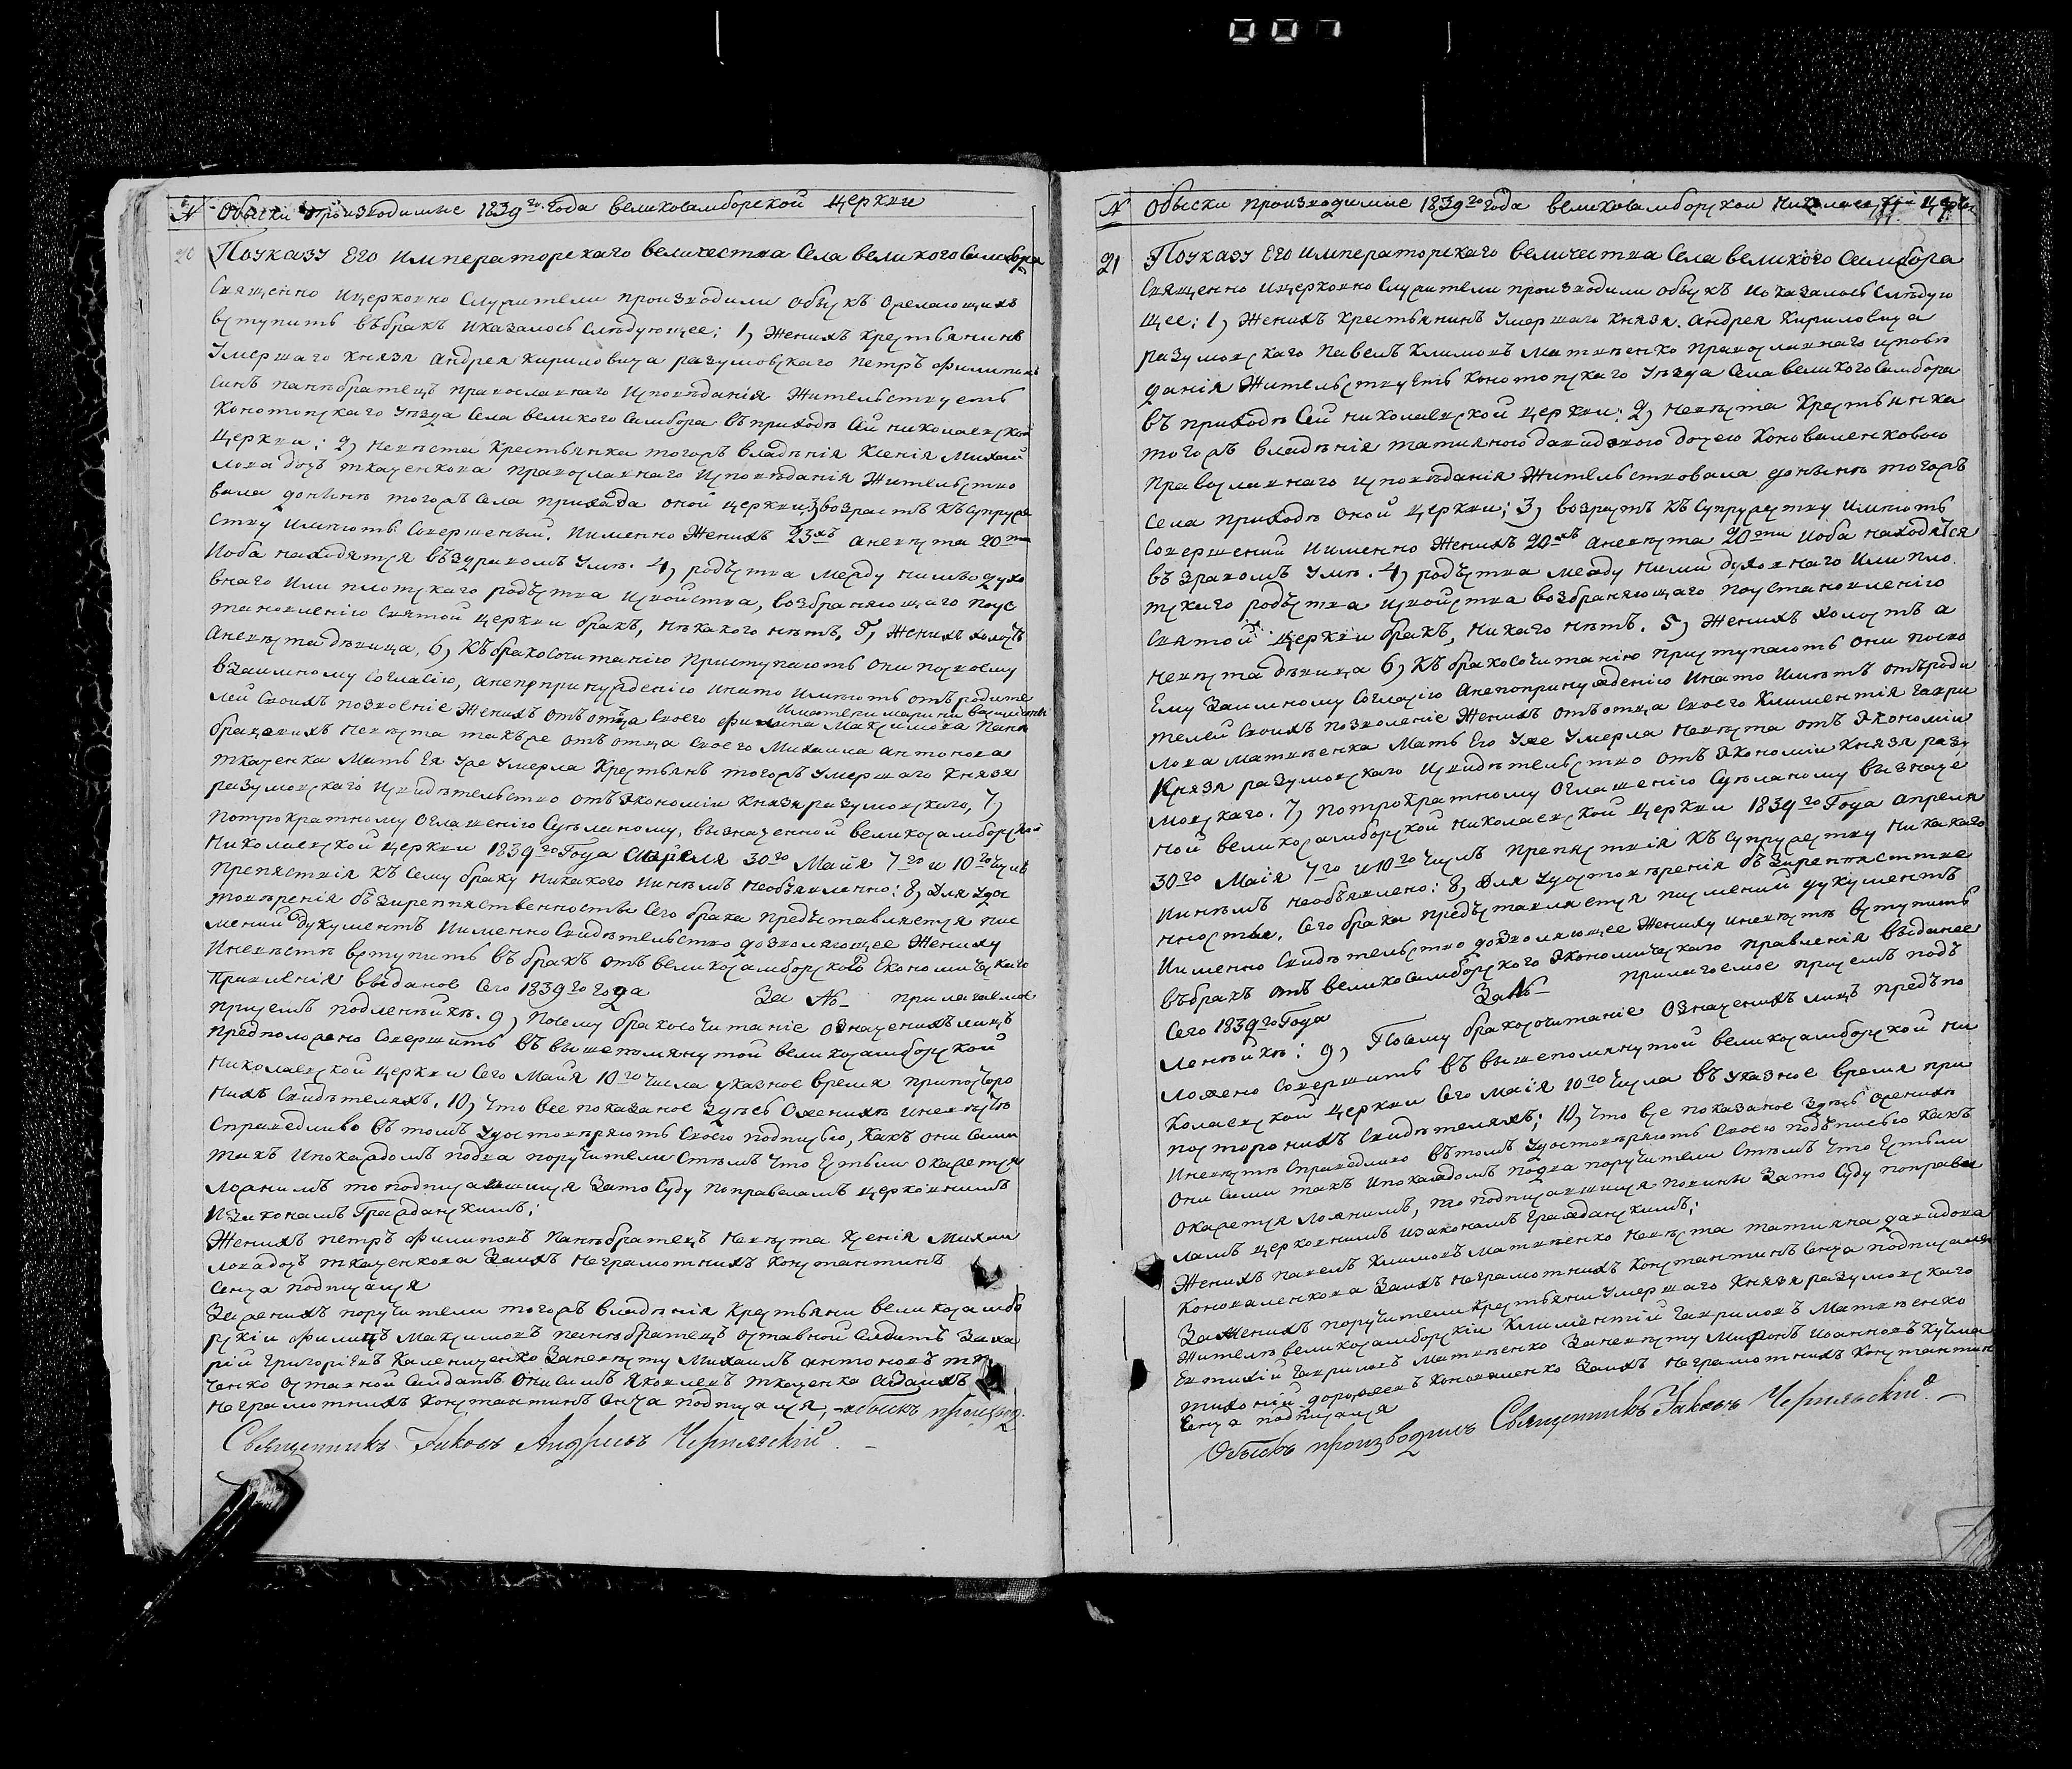 007
N Обыски произходимые 1839го года великосамборской церкви
20 Поуказу Его Императорскаго величества Села великого Самбора
Священно ицерковно Служители произходили обыскъ Ожелающихъ
вступить въбракъ иказалось слѣдующее: 1, Женихъ крестьянинъ
Умершаго Князя Андрея кириловича разумовскаго петръ филиповъ
Синъ панибратецъ православнаго исповѣданія Жительствуетъ
Конотопскаго Уѣзда Села великого Самбора въприходѣ Сей николаевской
церкви: 2, невѣста крестьянка тогожъ владѣнія Ксенія Михай
лова дочъ ткаченкова православнаго исповѣданія Жительство
вала донинѣ тогожъ села прихода оной церкви, 3, возрастъ къ супруже
ству имѣютъ совершеный. иименно Женихъ 23хъ аневѣста 20ти
Иоба находятся въздравомъ умѣ. 4, родъства между нимы духо
внаго или плотскаго родъства исвойства, возбраняющаго поус
тановленію святой церкви бракъ, нѣкакого нѣтъ, 5, Женихъ холостъ
Аневѣста дѣвица, 6, Къ бракосочитанію приступаютъ они посвоему
взаимному согласію, анепопринужденію инато имѣютъ отъ родите
лей своихъ позволеніе Женихъ отъ отца своего филипа Максимова пани
иматери марини
братскихъ невѣста такъже отъ отца своего Михаила антонова
ткаченка мать Ея уже умерла Крестьянъ тогожъ умершаго Князя
разумовскаго исвидѣтельство отъ экономіи князя разумовскаго, 7,
потрократному оглашенію Сдѣланому, вызначенной великосамборской
николаевской церкви 1839го Года апреля 30го Майя 7го и 10го чиселъ
препяствія къ сему браку никакого никѣмъ необъявленно: 8, Для удос
товѣренія бѣзпрепятственности сего брака предъставляется пис
мений Дукументъ иименно свидѣтельство дозволяющее Жениху
иневѣстѣ вступить въ бракъ отъ великосамборского Економическаго
правленія выданое сего 1839го года За № прилагаемое
присемъ подленѣикѣ. 9, посему бракосочитаніе означенихъ лицъ
предположено совершить въ вышепомянутой великосамборской
николаевской церкви сего Майя 10го числа указное время припосторо
нихъ свидѣтеляхъ. 10, что все показаное здѣсь Оженихѣ иневѣстѣ
справедливо въ томъ удостовѣряютъ своею подписью, какъ они сами
такъ ипокаждомъ подва поручители стѣмъ что естьли окажется
ложнимъ то подписавшиися зато суду поправеламъ церковнимъ
изаконамъ Гражданскимъ;
Женихъ петръ филиповъ панибратецъ невѣста ксенія михаи
лова дочъ ткаченкова заихъ неграмотнихъ константинъ
сенча подписался
Заженихъ поручители тогожъ владѣнія крестьяни великосамбо
рскіи филипъ Максимовъ панибратецъ отставной салдатъ Заха
рій григоріевъ Каленіченко Заневѣсту Михаилъ антоновъ тка
ченко отставной салдатъ Онисимъ яковлевъ ткаченко азаихъ
неграмотнихъ константинъ сенча подписался, — обыскъ производ.
Священникъ Іаковъ Андреевъ Чернявскій. —
N Обыски произходимые 1839го года великосамборской николаевской церкви
21 Поуказу Его императорскаго величества Села великого Самбора
Священно ицерковно служители произходили обыскъ иоказалось слѣдую
щее: 1, Женихъ крестьянинъ умершаго князя. Андрея Кириловича
разумовскаго павелъ климовъ матвѣенко православнаго исповѣ
данія Жительствуетъ конотопскаго уѣзда Села великого самбора
въ приходѣ сей николаевской церкви: 2, невѣста крестьянка
тогожъ владѣнія татияною давидовою дочею коноваленковою
православнаго исповѣданія Жительствовала донынѣ тогожъ
села приходѣ оной церкви; 3, возрастъ къ супружеству имѣютъ
совершений иименно Женихъ 20хъ аневѣста 20ти иоба находятся
въ здравомъ умѣ. 4, родъства между ними духовнаго или пло
тскаго родъства исвойства возбраняющаго поустановленію
святой церкви бракъ, никаго нѣтъ. 5, Женихъ холостъ а
невѣста дѣвица 6, Къ бракосочитанію приступаютъ они посво
ему взаимному согласію анепопринужденію инато имѣютъ отъроди
телей своихъ позволеніе Женихъ отъотца своего климентія гаври
лова матвѣенка мать его уже умерла невѣста отъ экономіи
князя разумовскаго исвидѣтельство отъ экономіи князя разу
мовскаго. 7, потрократному оглашенію Сдѣланому вызначе
ной великосамборской николаевской церкви 1839го Года апреля
30го Маія 7го и10го чиселъ препяствія къ супружеству никакаго
никѣмъ необъявлено: 8, Для удостовѣренія бѣзпрепятстве
нности, сего брака предъставляется писмений дукументъ
иименно свидѣтельство дозволяющее жениху иневѣстѣ вступить
въбракъ отъ великосамборскаго экономическаго правленія выданое
сего 1839го Года За № прилагаемое присемъ подъ
ленѣикѣ: 9, посему бракосочитаніе означенихъ лицъ предъпо
ложено совершить въ вышепомянутой великосамборской ни
колаевской церкви сего маія 10го числа въ указное время при
посторонихъ свидѣтеляхъ; 10, что все показаное здѣсь оженихѣ
иневѣстѣ справедливо въ томъ удостовѣряютъ своею подъписью какъ
они сами такъ ипокаждомъ подва поручители стѣмъ что естьли
окажется ложнимъ, то подписавшиися повини зато суду поправи
ламъ церковнимъ изаконамъ гражданскимъ;
Женихъ павелъ климовъ матвѣенко невѣста татияна давидова
коноваленкова заихъ неграмотнихъ константинъ сенча подписался
Заженихъ поручители крестьяни умершаго князя разумовскаго
жителѣ великосамборскіи климентій гавриловъ матвѣенко
евтихій гавриловъ матвѣенко Заневѣсту мифонъ иоанновъ кучма
тихоній дорофеевъ коноваленко заихъ неграмотнихъ константинъ
сенча подписался
Обыскъ производилъ Священникъ Іаковъ Чернявскій. —